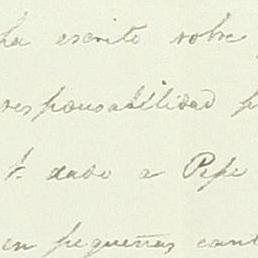 ha escrito sobre
responsabilidad p
dado a Pepe
en pequeñas cant